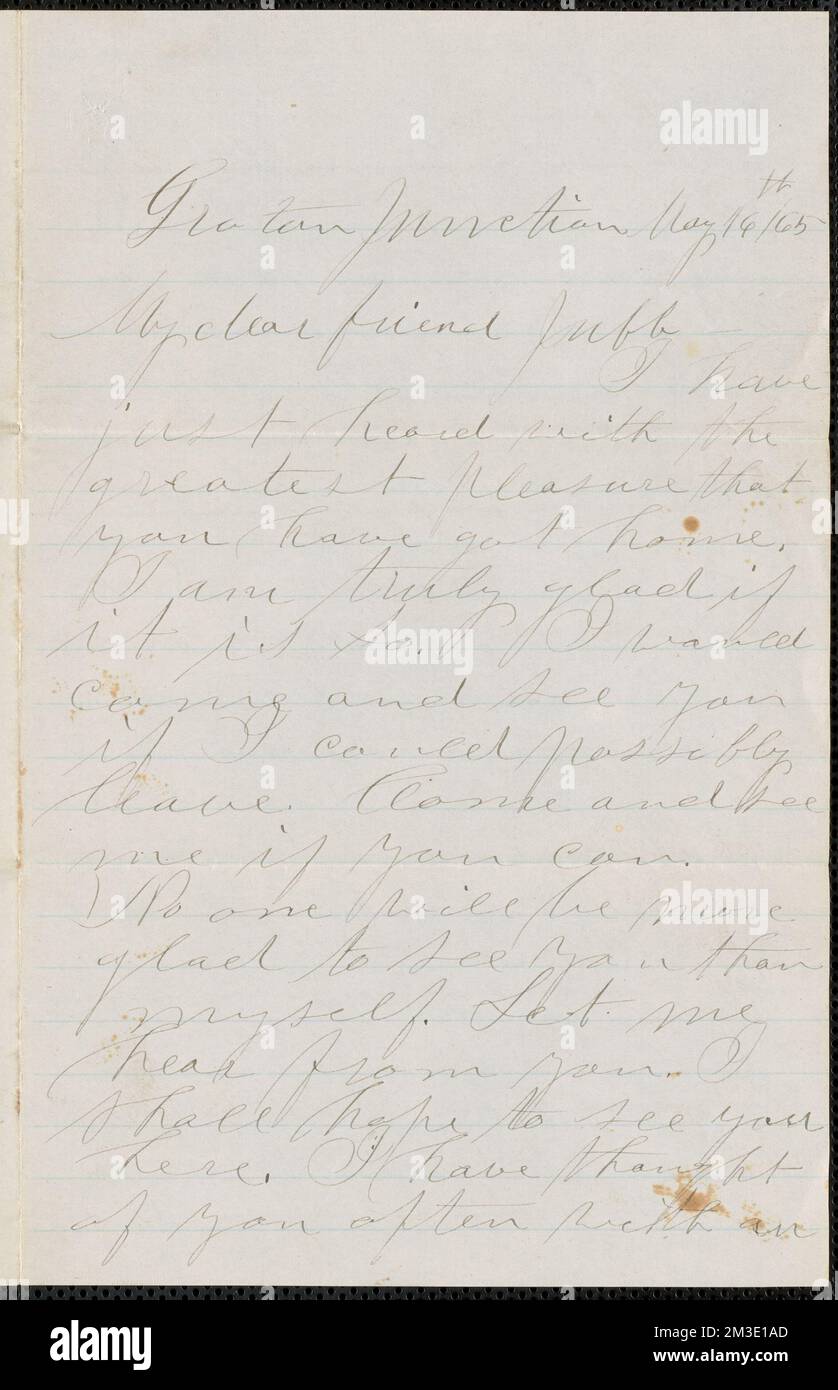 Groton Junction May 16th/65
My dear friend Jubb
I have
just heard with the
greatest pleasure that
you have got home.
I am truly glad if
it is so. I would
come and see you
if I could possibly
leave. Come and see
me if you can.
No one will be more
glad to see you than
myself. Let me
hear from you. I
shall hope to see you
here. I have thought
of you often with an
alamy
Image ID: 2M3E1AD
www.alamy.com